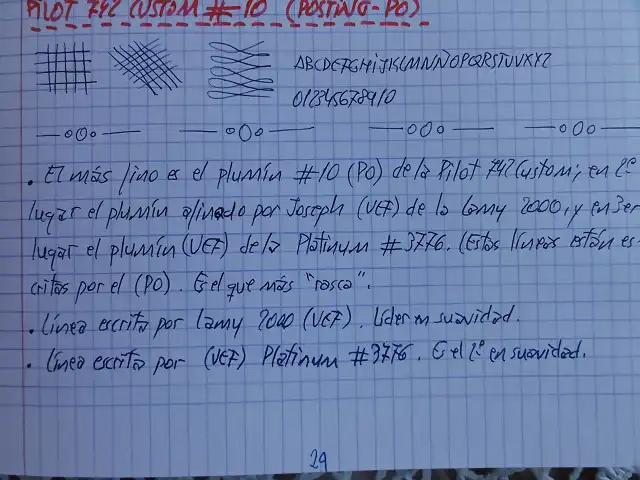 PILOT 742 CUSTOM #10 (POSTING-PO)
ABCDEFGHIJKLMNÑOPQRSTUVXYZ
012345678910
• El más fino es el plumín #10 (PO) de la Pilot 742 Custom; en 2º
lugar el plumín afinado por Joseph (UEF) de la Lamy 2000, y en 3er
lugar el plumín (UEF) de la Platinum #3776. (Estas líneas están es-
critas por el (PO). Es el que más "rasca".
• Línea escrita por Lamy 2000 (UEF). Líder en suavidad.
• Línea escrita por (UEF) Platinum #3776. Es el 2º en suavidad.
29